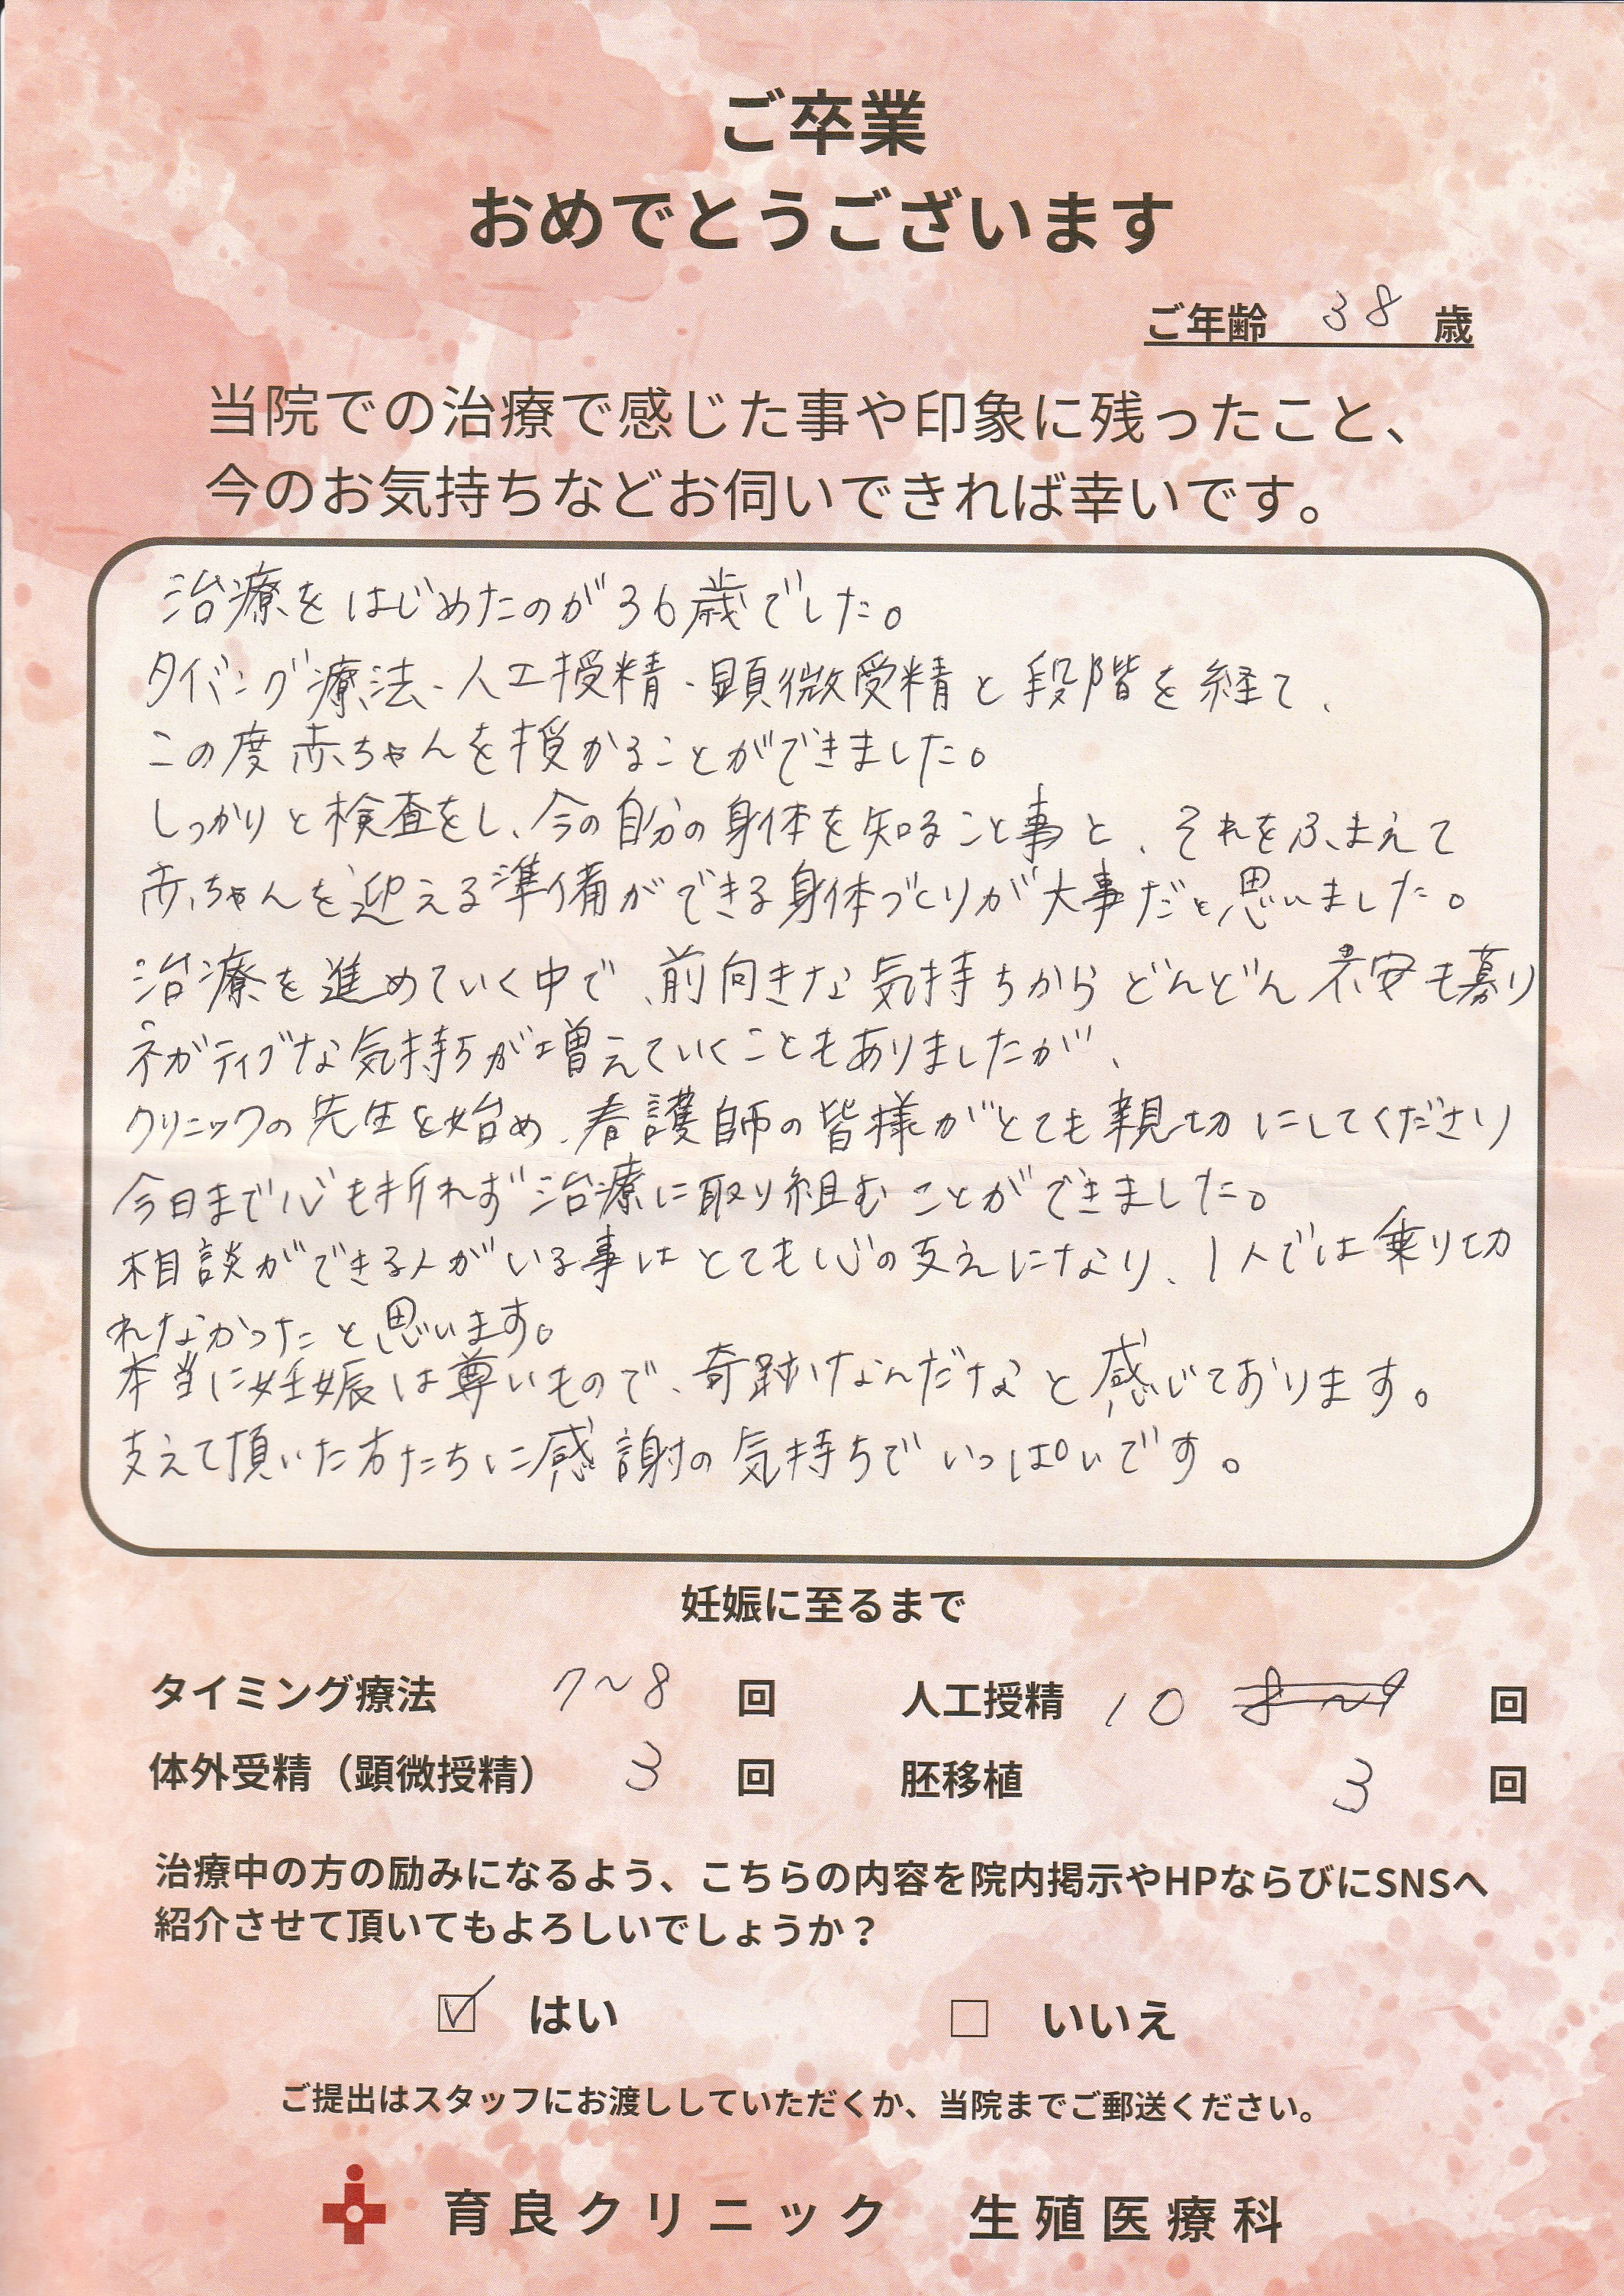 ご卒業
おめでとうございます
ご年齢 38 歳
当院での治療で感じた事や印象に残ったこと、
今のお気持ちなどお伺いできれば幸いです。
治療をはじめたのが36歳でした。
タイミング療法、人工授精、顕微受精と段階を経て、
この度赤ちゃんを授かることができました。
しっかりと検査をし、今の自分の身体を知ること事と、それをふまえて
赤ちゃんを迎える準備ができる身体づくりが大事だと思いました。
治療を進めていく中で、前向きな気持ちからどんどん不安も募り
ネガティブな気持ちが増えていくこともありましたが、
クリニックの先生を始め、看護師の皆様がとても親切にしてくださり
今日まで心も折れず治療に取り組むことができました。
相談ができる人がいる事はとても心の支えになり、1人では乗り切
れなかったと思います。
本当に妊娠は尊いもので、奇跡なんだなと感じております。
支えて頂いた方たちに感謝の気持ちでいっぱいです。
妊娠に至るまで
タイミング療法 7~8 回 人工授精 10 8~9 回
体外受精（顕微授精） 3 回 胚移植 3 回
治療中の方の励みになるよう、こちらの内容を院内掲示やHPならびにSNSへ
紹介させて頂いてもよろしいでしょうか？
☑ はい □ いいえ
ご提出はスタッフにお渡ししていただくか、当院までご郵送ください。
育良クリニック 生殖医療科